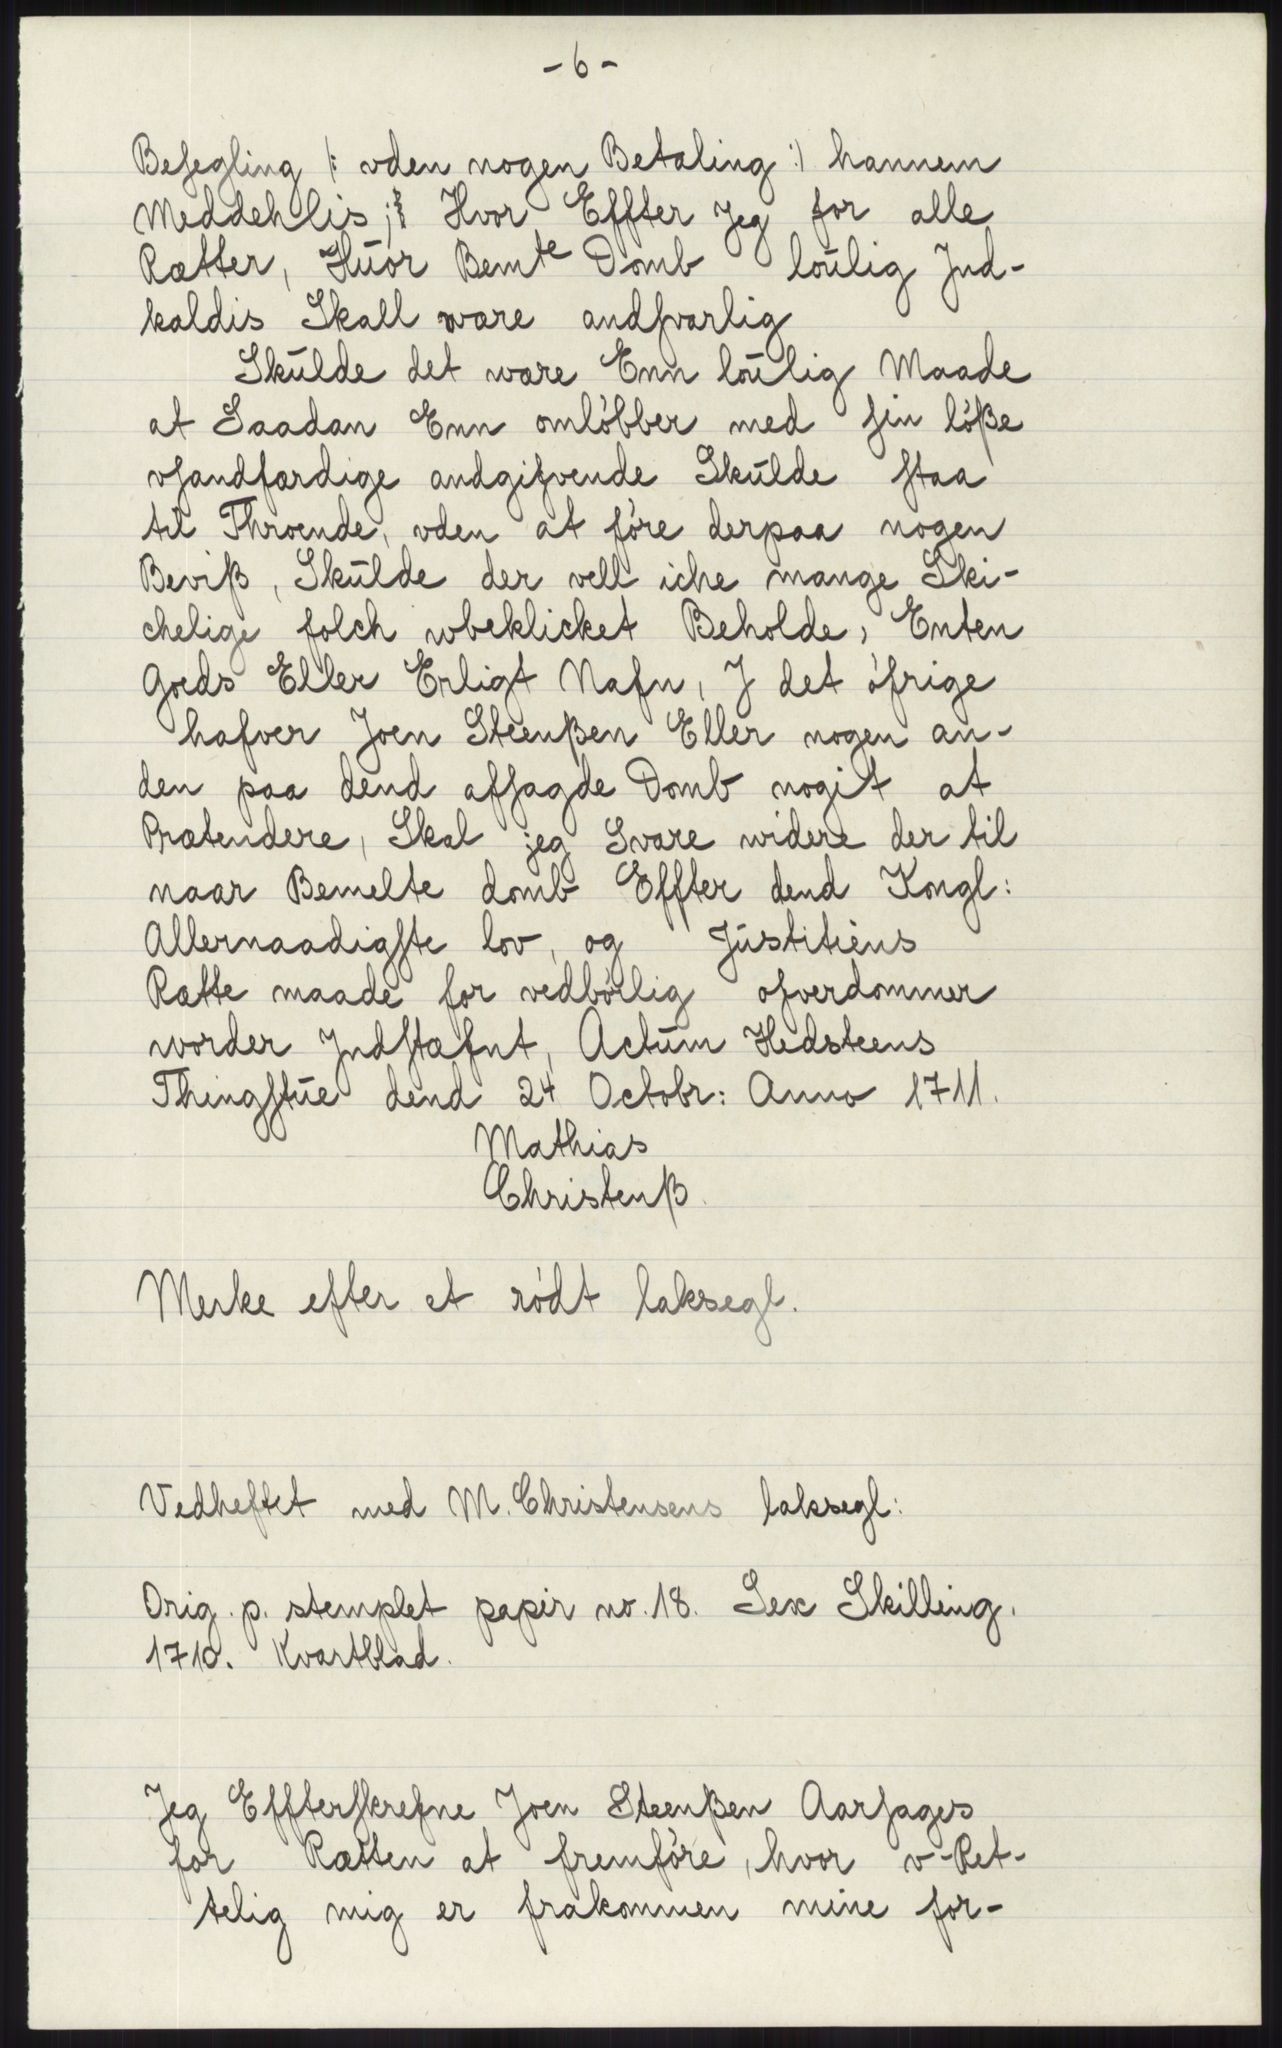 - 6 -
Besegling (: vden nogen Betaling :) hannem
Meddehlis; Hvor Effter Jeg for alle
Rætter, Hŭor Bemte Domb loŭlig Jnd-
kaldis Skall være andsvarlig
Skŭlde det være Enn loŭlig Maade
at Saadan Enn omløbber med sin løße
vsandfærdige andgifvende Skŭlde staa
til Throende, vden at føre derpaa nogen
Beviß, Skŭlde der vell iche mange Ski-
chelige folch wbeklicket Beholde, Enten
Gods Eller Erligt Nafn, J det øfrige
hafver Joen Steenßen Eller nogen an-
den paa dend afsagde Domb nogit at
Prætendere, Skal jeg Svare widere der til
naar Bemelte domb Effter dend Kongl:
Allernaadigste lov, og Jŭstitiens
Rætte maade for vedbørlig ofverdommer
worder Jndstæfnt, Actŭm Hedsteens
Thingstŭe dend 24 Octobr: Anno 1711.
Mathias
Christenß.
Merke efter et rødt laksegl.
Vedheftet med M. Christensens laksegl:
Orig. p. stemplet papir no. 18. Sex Skilling.
1710. Kvartblad.
Jeg Effterskrefne Joen Steenßen Aarsages
for Rætten at fremføre, hvor v-Ret-
telig mig er frakommen mine for-